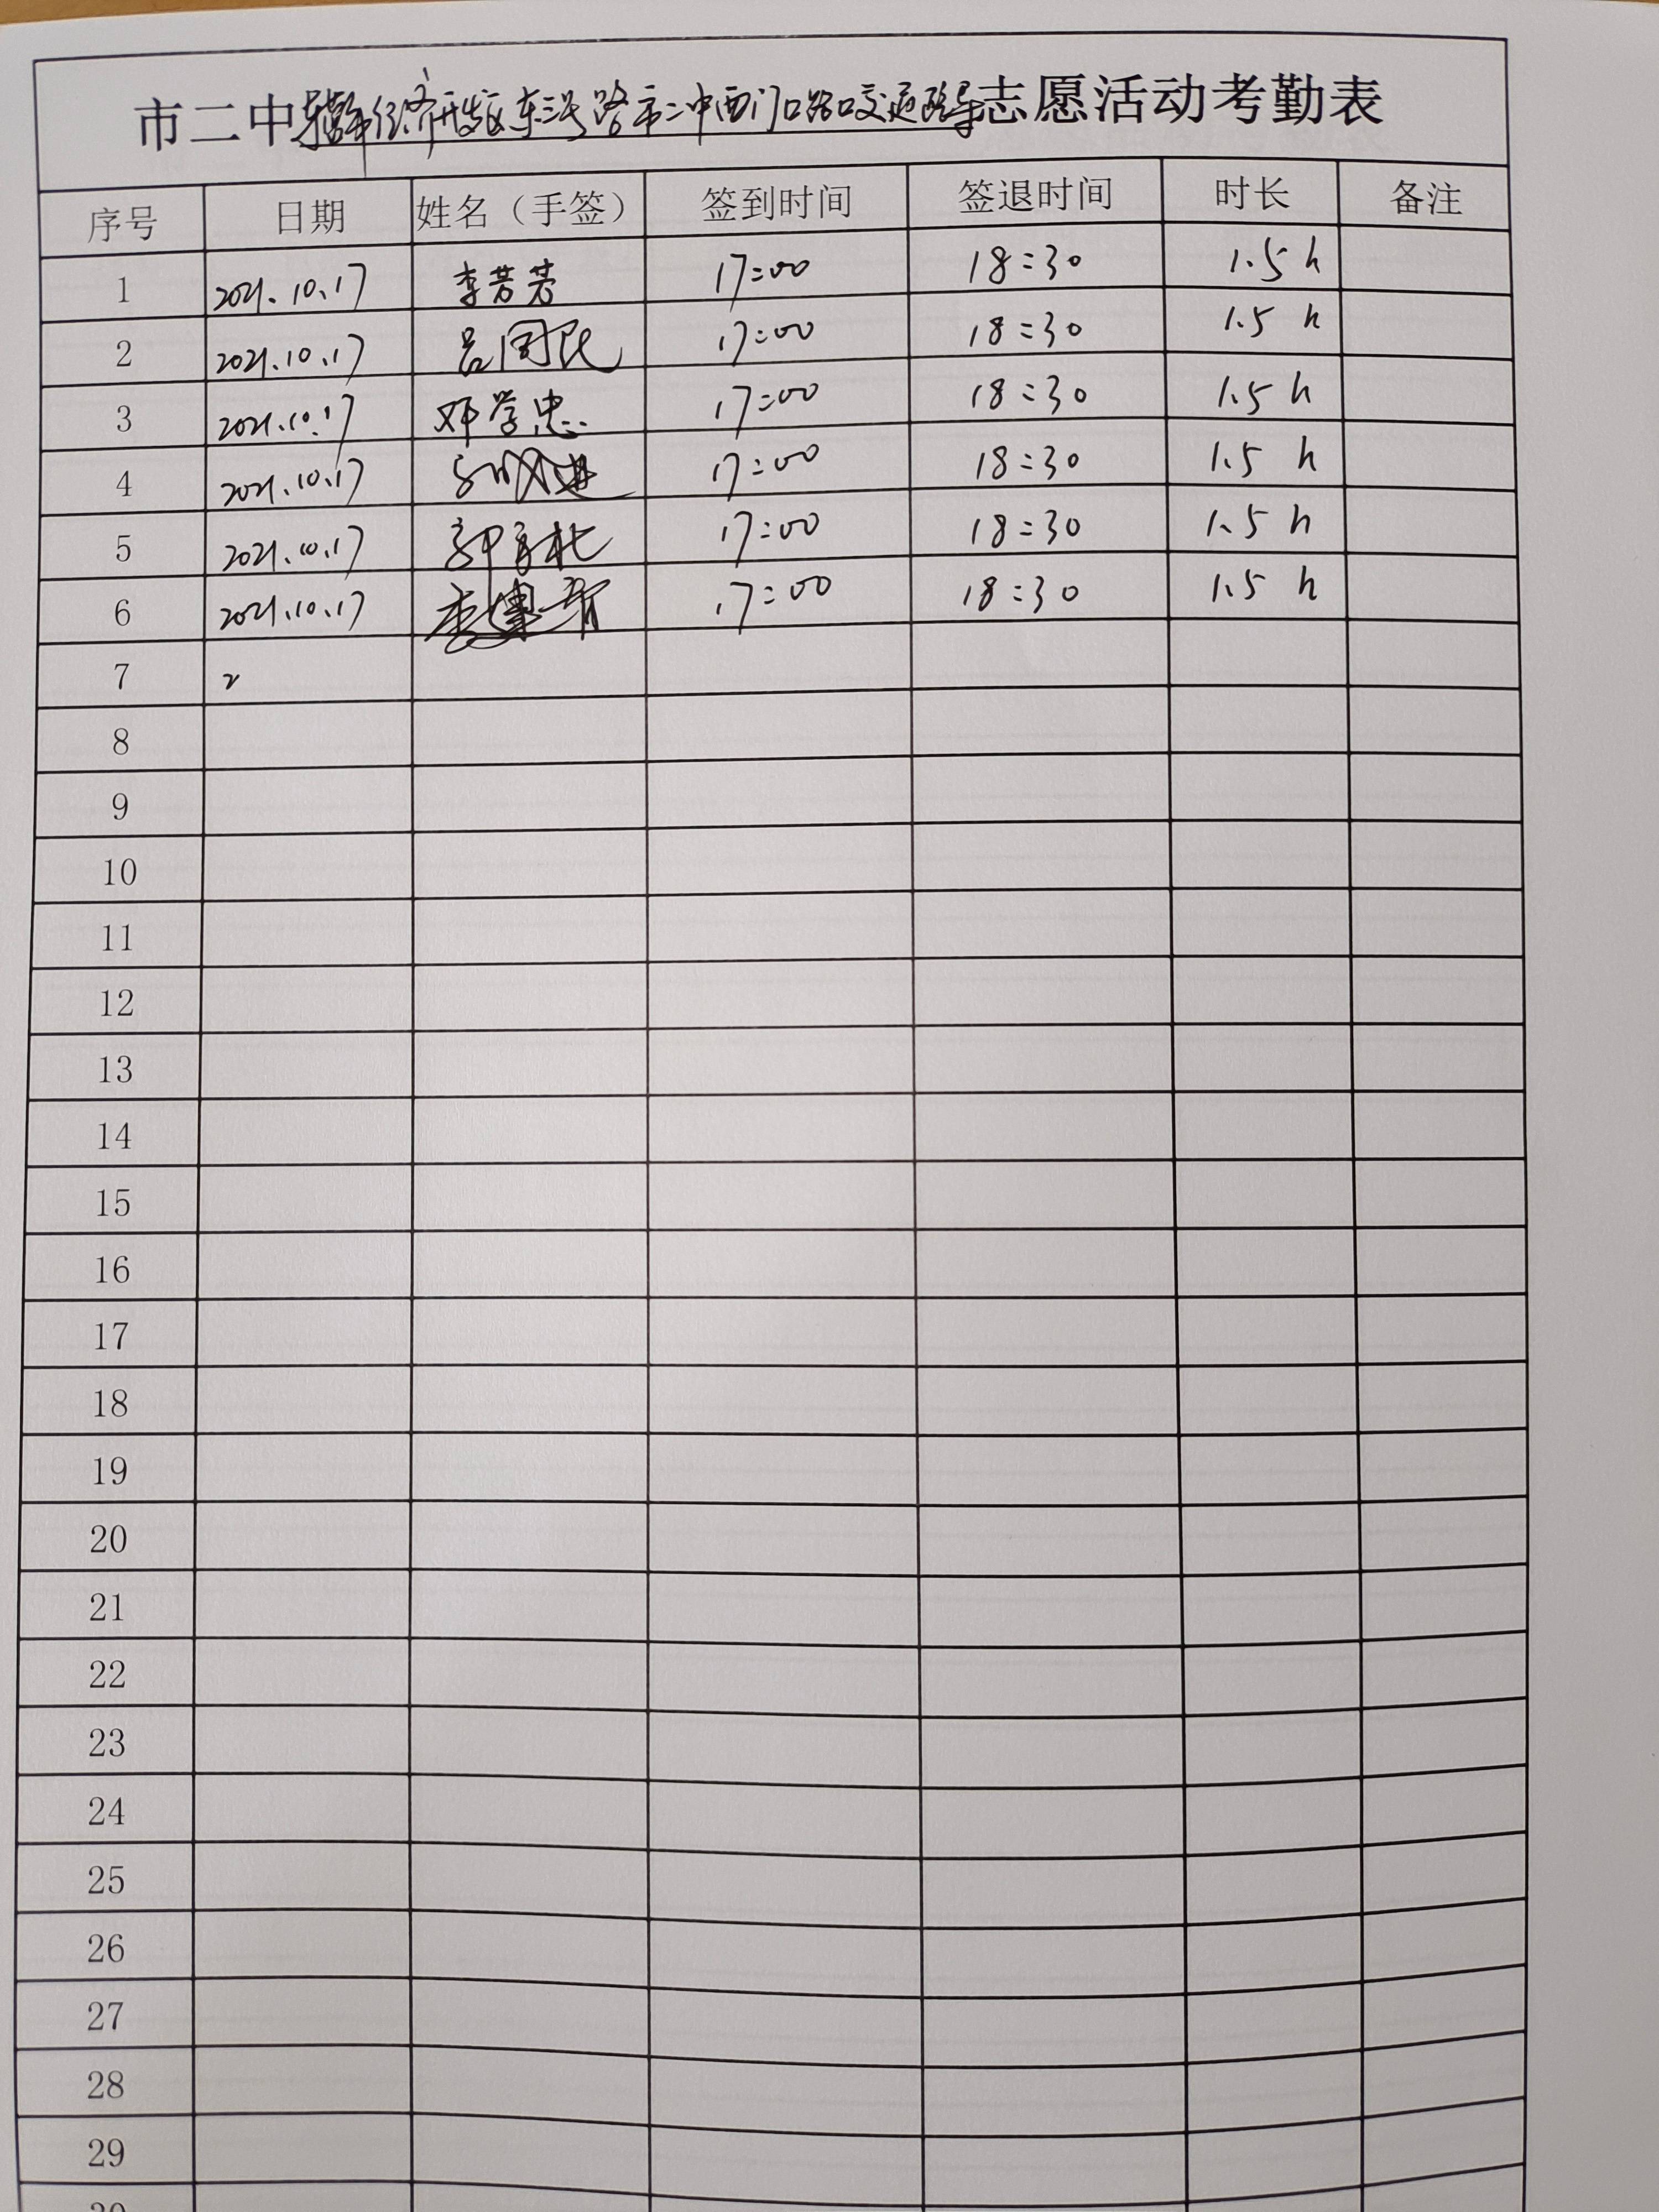 市二中东营市经济开发区东三路市二中西门口路口交通疏导志愿活动考勤表
序号 日期 姓名（手签） 签到时间 签退时间 时长 备注
1 2021.10.17 李芳芳 17:00 18:30 1.5 h
2 2021.10.17 吕国民 17:00 18:30 1.5 h
3 2021.10.17 邓学忠 17:00 18:30 1.5 h
4 2021.10.17 17:00 18:30 1.5 h
5 2021.10.17 17:00 18:30 1.5 h
6 2021.10.17 17:00 18:30 1.5 h
7 2
8
9
10
11
12
13
14
15
16
17
18
19
20
21
22
23
24
25
26
27
28
29